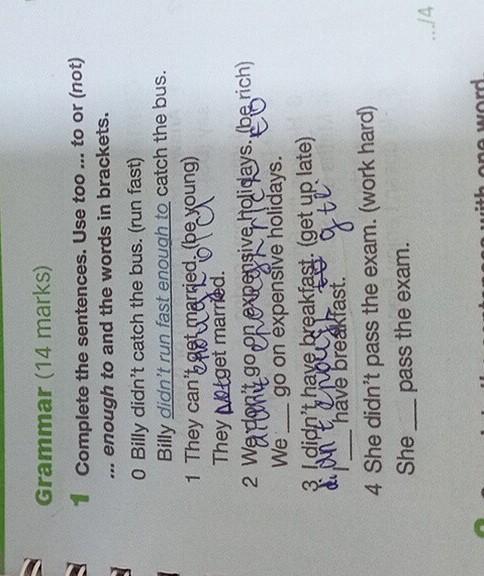 Grammar (14 marks)
1 Complete the sentences. Use too ... to or (not)
... enough to and the words in brackets.
0 Billy didn't catch the bus. (run fast)
Billy didn't run fast enough to catch the bus.
1 They can't get married. (be young)
enough
They get married.
2 We don't go on expensive holidays. (be rich)
enough rich to
We ___ go on expensive holidays.
3 I didn't have breakfast. (get up late)
enough
I ___ have breakfast.
4 She didn't pass the exam. (work hard)
She ___ pass the exam.
.../4
with one word